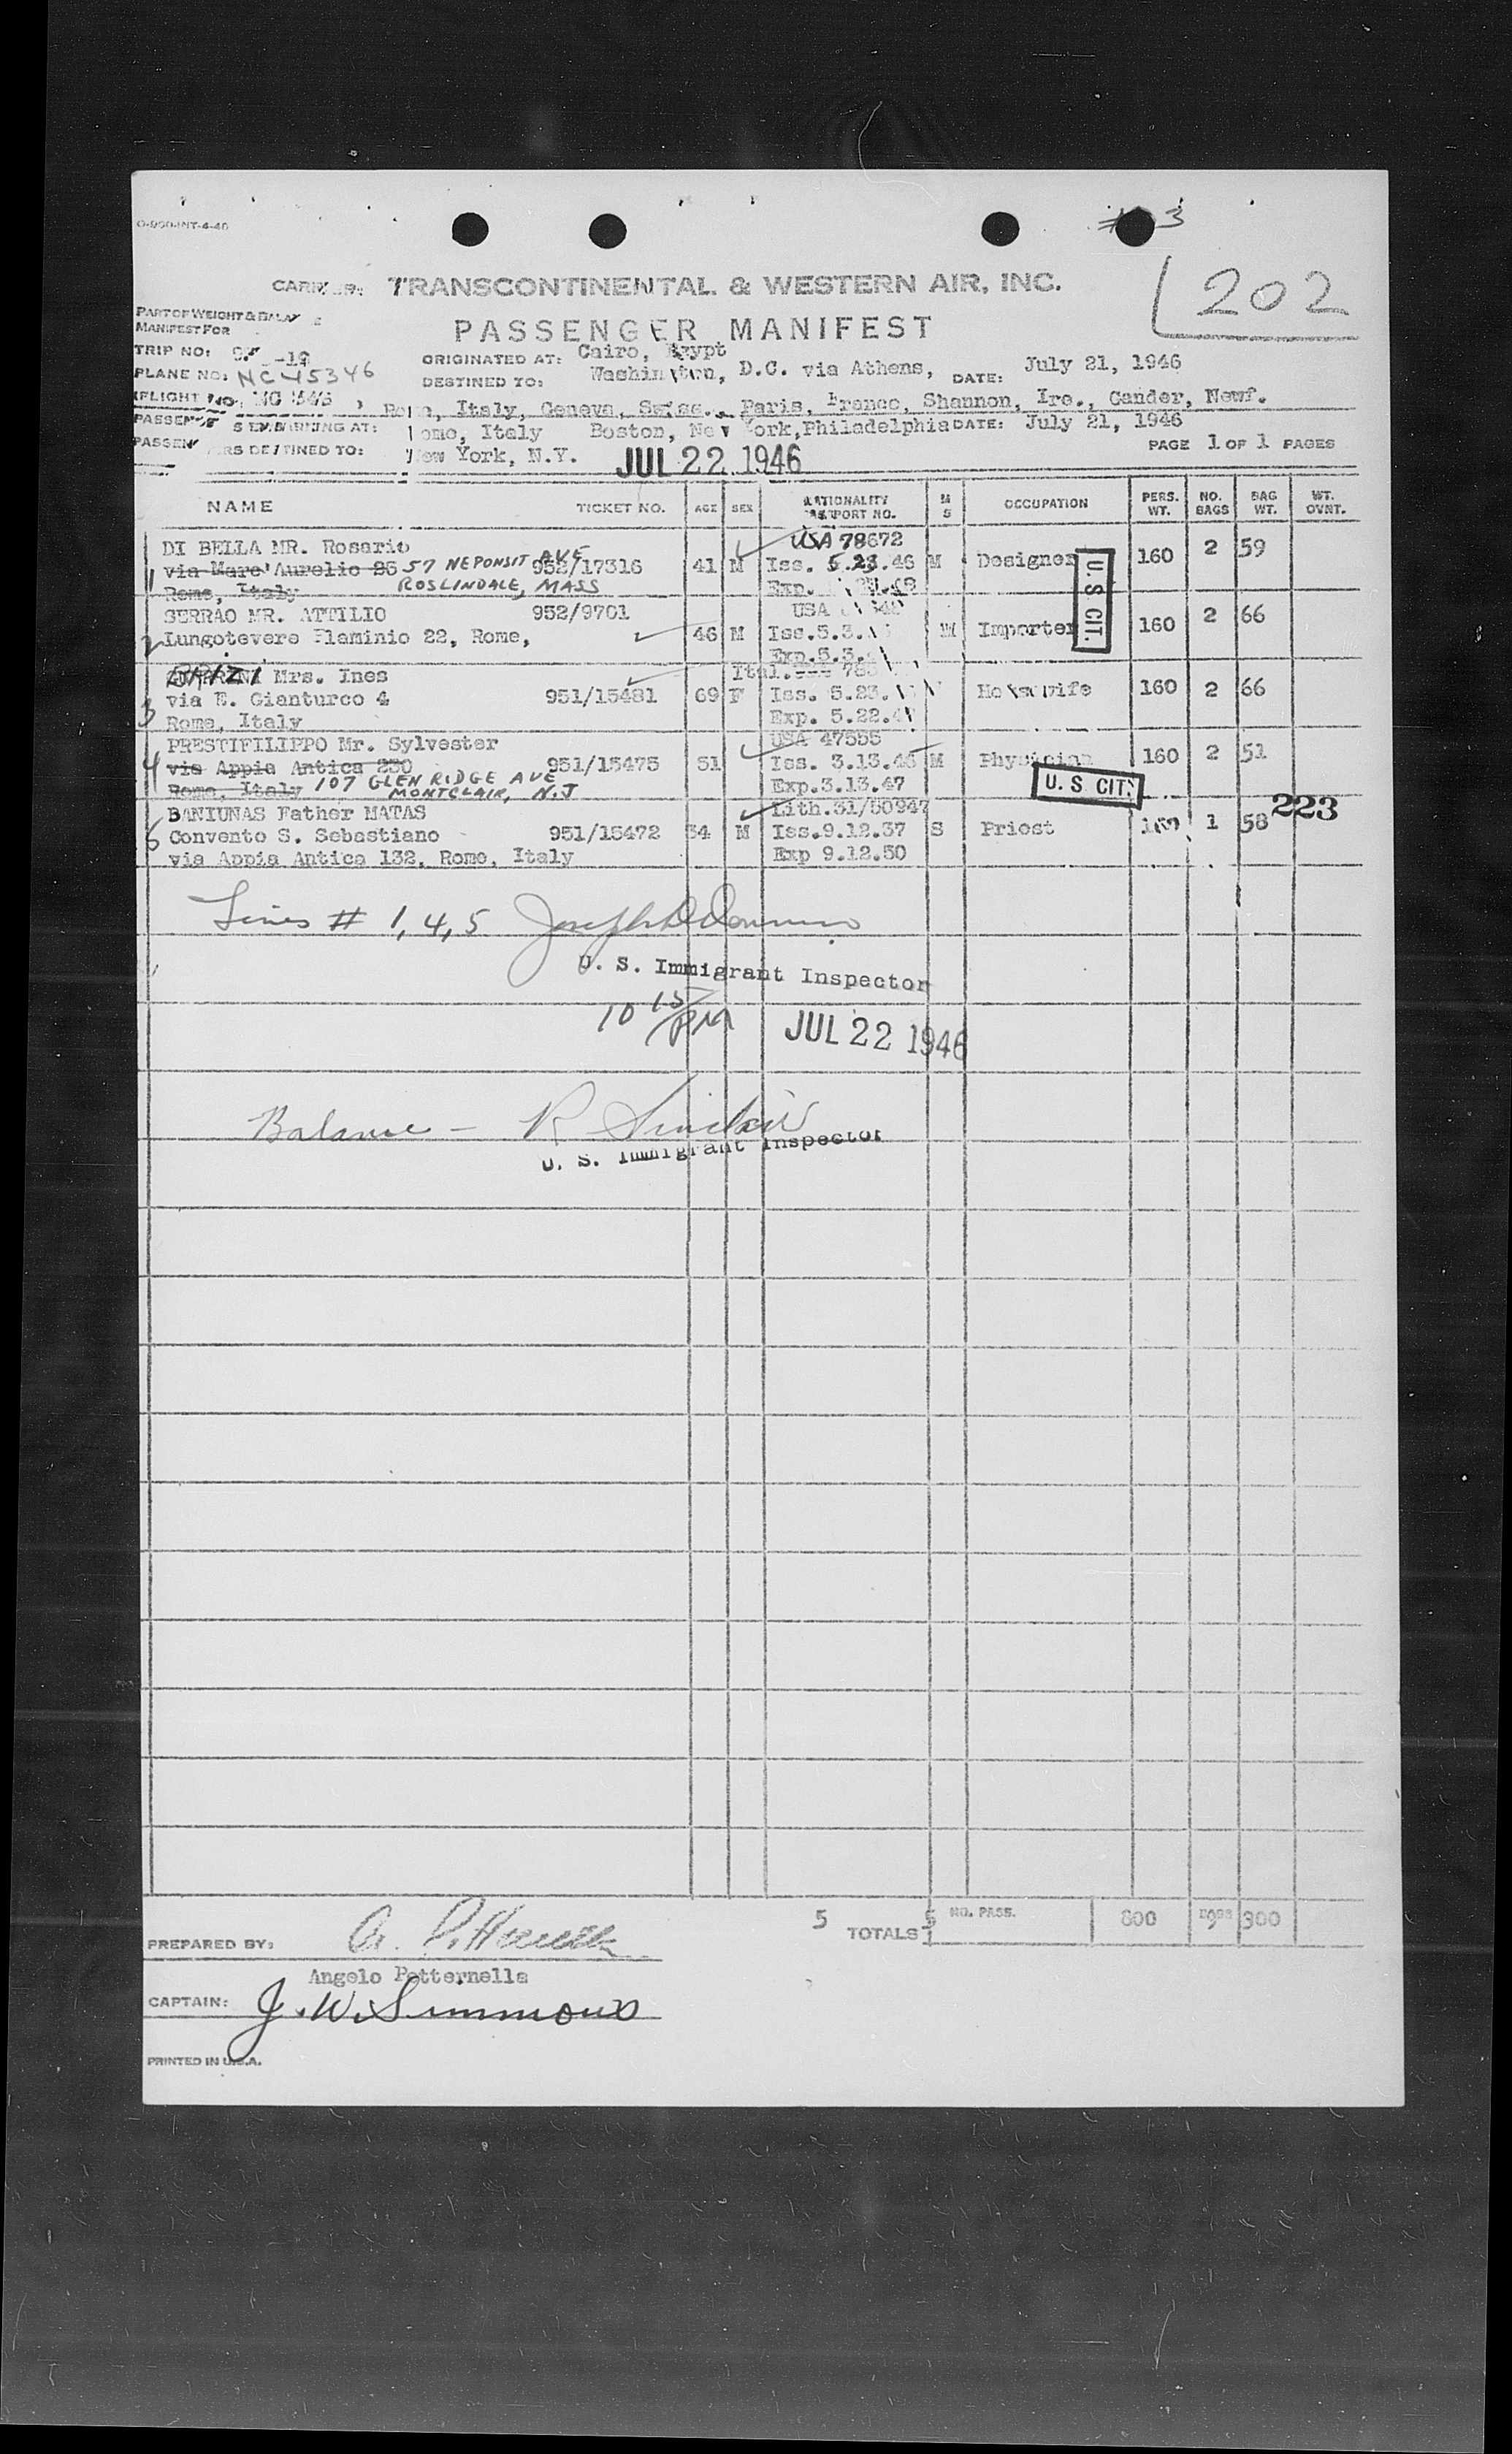 O-900-INT-4-46
#3
202
TRANSCONTINENTAL & WESTERN AIR, INC.
PART OF WEIGHT & BALANCE
MANIFEST FOR
PASSENGER MANIFEST
TRIP NO:
ORIGINATED AT: Cairo, Egypt
PLANE NO: NC 45346
DESTINED TO: Washington, D.C. via Athens, DATE: July 21, 1946
FLIGHT NO.
Rome, Italy, Geneva, Swiss., Paris, France, Shannon, Ire., Gander, Newf.
PASSENGERS EMBARKING AT: Rome, Italy Boston, New York, Philadelphia DATE: July 21, 1946
PASSENGERS DESTINED TO: New York, N.Y. JUL 22 1946 PAGE 1 OF 1 PAGES
NAME TICKET NO. AGE SEX NATIONALITY PASSPORT NO. M S OCCUPATION PERS. WT. NO. BAGS BAG WT. WT. OVNT.
DI BELLA MR. Rosario USA 78672
1 via Marc' Aurelio 26 57 NEPONSIT AVE 952/17316 41 M Iss. 5.23.46 M Designer U.S CIT. 160 2 59
Rome, Italy ROSLINDALE, MASS Exp.
SERRAO MR. ATTILIO 952/9701 USA
2 Lungotevere Flaminio 22, Rome, 46 M Iss.5.3. M Importer 160 2 66
Exp.5.3.
BRIZI Mrs. Ines Ital.
3 via E. Gianturco 4 951/15481 69 F Iss. 5.23. Housewife 160 2 66
Rome, Italy Exp. 5.22.
PRESTIFILIPPO Mr. Sylvester USA 47555
4 via Appia Antica 230 951/15475 51 Iss. 3.13.46 M Physician 160 2 51
Rome, Italy 107 GLEN RIDGE AVE Exp.3.13.47 U. S CIT.
MONTCLAIR, N.J
BANIUNAS Father MATAS Lith.31/50947 223
5 Convento S. Sebastiano 951/15472 34 M Iss.9.12.37 S Priest 160 1 58
via Appia Antica 132, Rome, Italy Exp 9.12.50
Lines # 1, 4, 5
U. S. Immigrant Inspector
10 15 PM JUL 22 1946
Balance - R Sinclair
U. S. Immigrant Inspector
5 TOTALS 5 NO. PASS. 800 9 300
PREPARED BY:
Angelo Petternella
CAPTAIN: J. W. Simmons
PRINTED IN U.S.A.